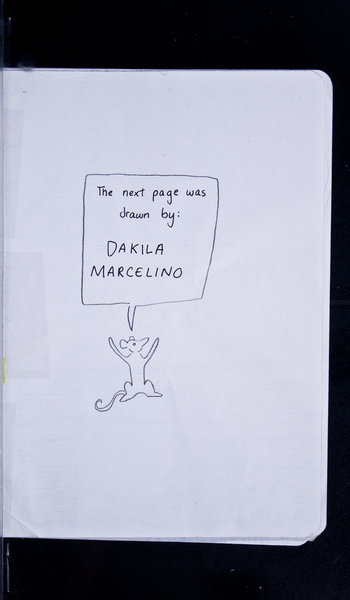 The next page was
drawn by:
DAKILA
MARCELINO